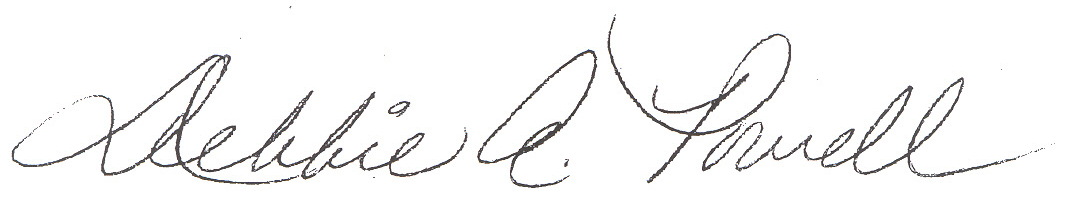 Debbie A. Powell